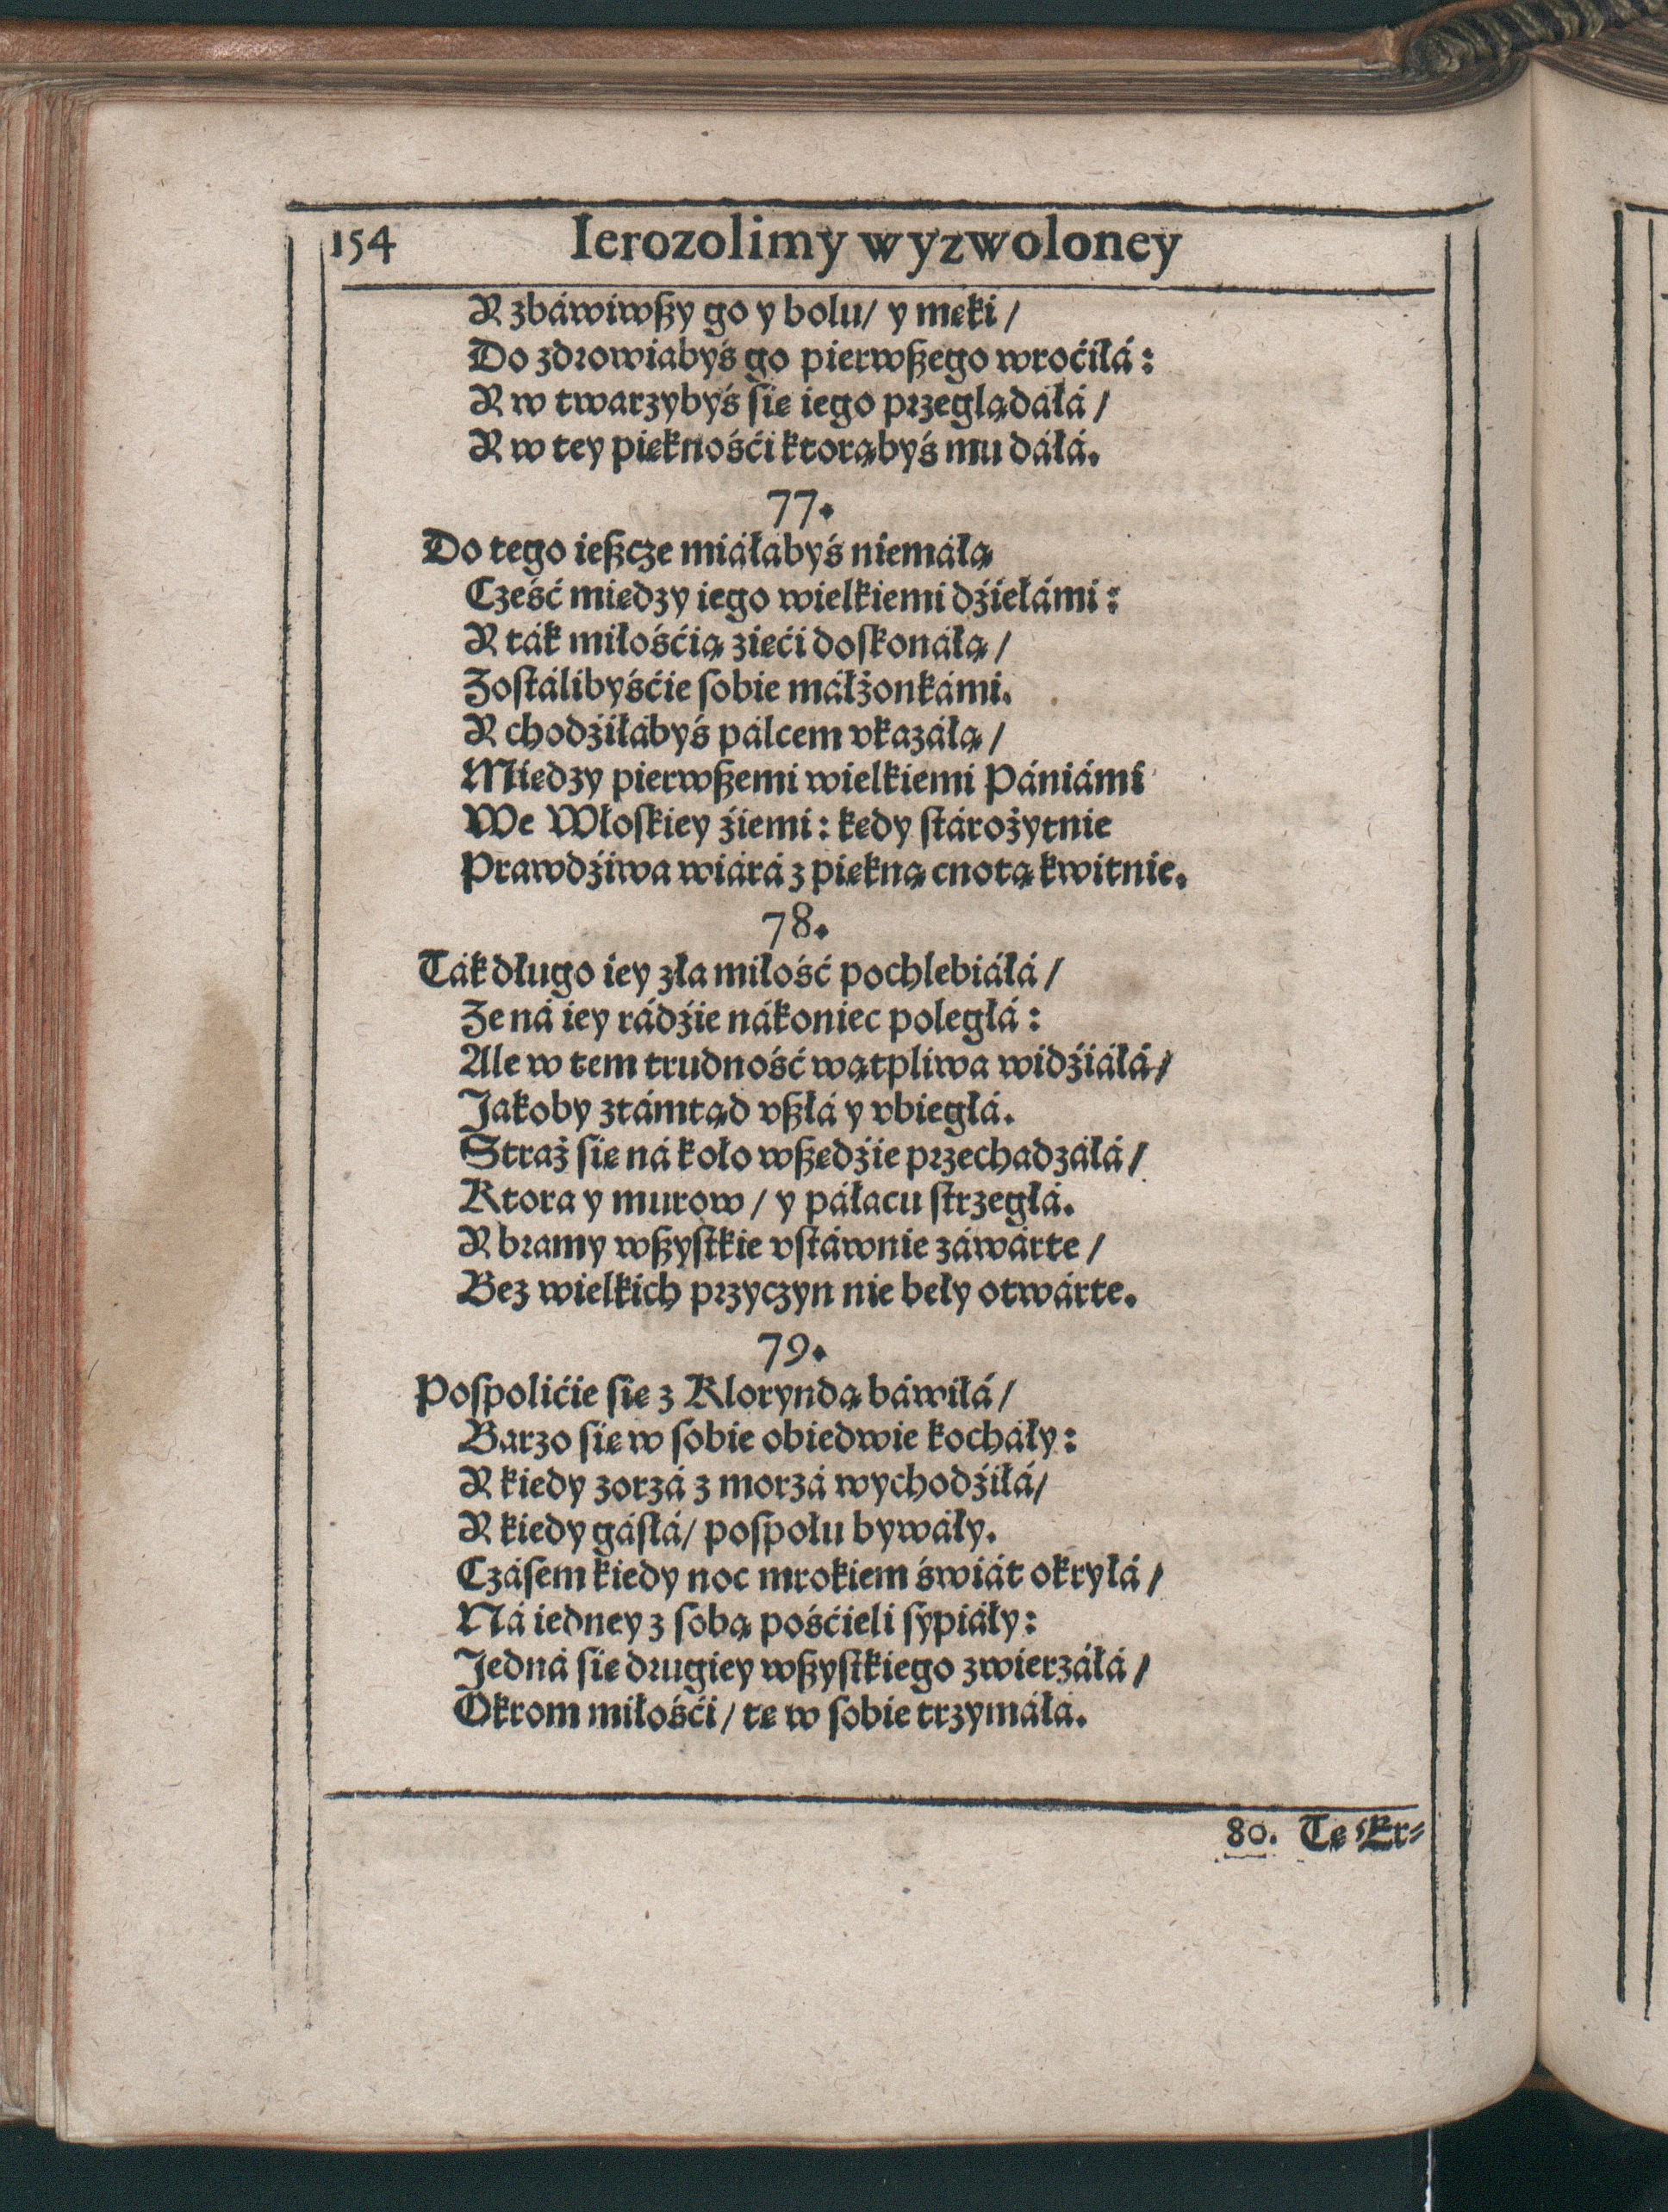 154 Ierozolimy wyzwoloney
Y zbáwiwßy go y bolu/ y męki/
Do zdrowiabyś go pierwßego wroćiłá:
Y w twarzybyś się iego przeglądáłá/
Y w tey pięknośći ktorąbyś mu dáłá.
77.
Do tego ießcze miáłabyś niemáłą
Cześć między iego wielkiemi dźiełámi:
Y ták miłośćią zięći doskonáłą/
Zostálibyśćie sobie máłżonkámi.
Y chodźiłábyś pálcem vkazáłą/
Między pierwßemi wielkiemi Pániámi
We Włoskiey źiemi: kędy stárożytnie
Prawdźiwa wiárá z piękną cnotą kwitnie.
78.
Ták długo iey zła miłość pochlebiáłá/
Ze ná iey rádźie nákoniec poległá:
Ale w tem trudność wątpliwa widźiáłá/
Jakoby ztámtąd vßłá y vbiegłá.
Straż się ná koło wßędźie przechadzáłá/
Ktora y murow/ y páłacu strzegłá.
Y bramy wßystkie vstáwnie záwárte/
Bez wielkich przyczyn nie beły otwárte.
79.
Pospolićie się z Kloryndą báwiłá/
Barzo się w sobie obiedwie kocháły:
Y kiedy zorzá z morzá wychodźiłá/
Y kiedy gásłá/ pospołu bywáły.
Czásem kiedy noc mrokiem świát okryłá/
Ná iedney z sobą pośćieli sypiáły:
Jedná się drugiey wßystkiego zwierzáłá/
Okrom miłośći/ tę w sobie trzymáłá.
80. Tę Er⸗